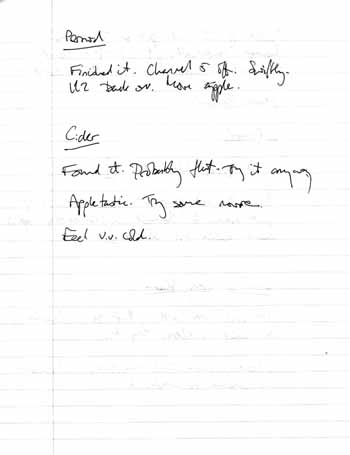 Pernod
Finished it. Channel 5 off. Swiftly.
U2 back on. More apple.
Cider
Found it. Probably flat. Try it anyway
Appletastic. Try some more.
Feel v.v. cold.